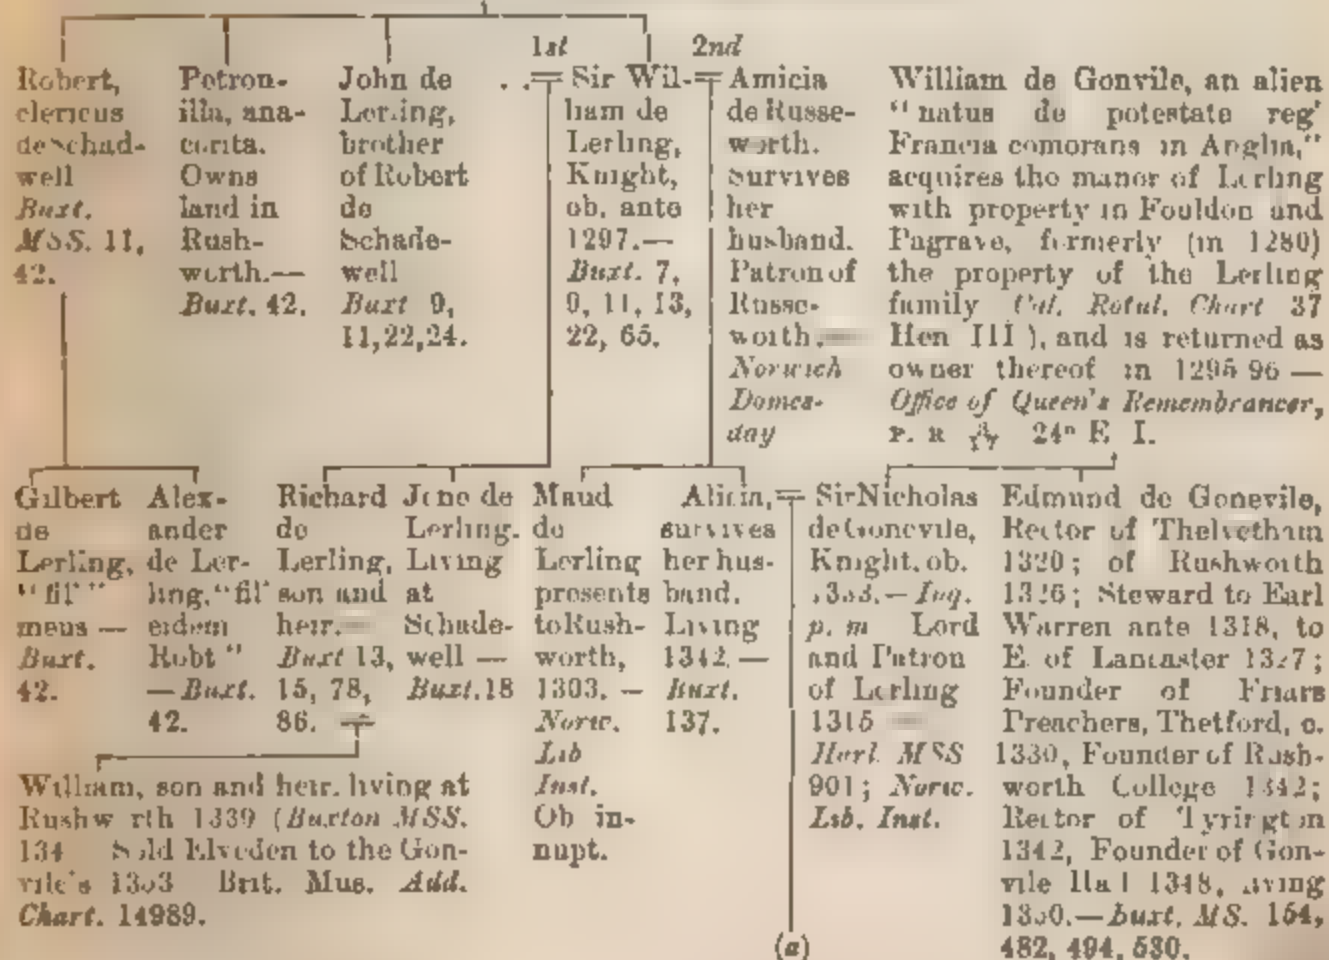 1st
2nd
Robert,
clericus
de Schad-
well
Buxt.
MSS. 11,
42.
Petron-
illa, ana-
corita.
Owns
land in
Rush-
worth.—
Buxt. 42.
John de
Lerling,
brother
of Robert
de
Schade-
well
Buxt 9,
11,22,24.
. . = Sir Wil- =
liam de
Lerling,
Knight,
ob. ante
1297.—
Buxt. 7,
9, 11, 13,
22, 65.
Amicia
de Russe-
worth.
Survives
her
husband.
Patron of
Russe-
worth.
Norwich
Domes-
day
William de Gonvile, an alien
"natus de potestate reg'
Francia comorans in Anglia,"
acquires the manor of Lerling
with property in Fouldon and
Pagrave, formerly (in 1280)
the property of the Lerling
family Cal. Rotul. Chart 37
Hen III ), and is returned as
owner thereof in 1295 96 —
Office of Queen's Remembrancer,
P. R 24ⁿ E I.
Gilbert
de
Lerling,
"fil"
meus —
Buxt.
42.
Alex-
ander
de Ler-
ling, "fil'
eidem
Robt "
—Buxt.
42.
Richard
de
Lerling,
son and
heir.
Buxt 13,
15, 78,
86.
Jone de
Lerling.
Living
at
Schade-
well —
Buxt.18
Maud
de
Lerling
presents
to Rush-
worth,
1303. —
Norw.
Lib
Inst.
Ob in-
nupt.
Alicia, =
survives
her hus-
band.
Living
1342 —
Buxt.
137.
Sir Nicholas
de Gonevile,
Knight. ob.
— Inq.
p. m Lord
and Patron
of Lerling
1315
Harl. MSS
901; Norw.
Lib. Inst.
Edmund de Gonevile,
Rector of Thelvetham
1320; of Rushworth
1326; Steward to Earl
Warren ante 1318, to
E. of Lancaster 1327;
Founder of Friars
Preachers, Thetford, c.
1330, Founder of Rush-
worth College 1342;
Rector of Tyrington
1342, Founder of Gon-
vile Hall 1348, living
1350.—Buxt. MS. 154,
482, 494, 530.
William, son and heir. living at
Rushw rth 1339 (Buxton MSS.
134 Sold Elveden to the Gon-
vile's Brit. Mus. Add.
Chart. 14989.
(a)